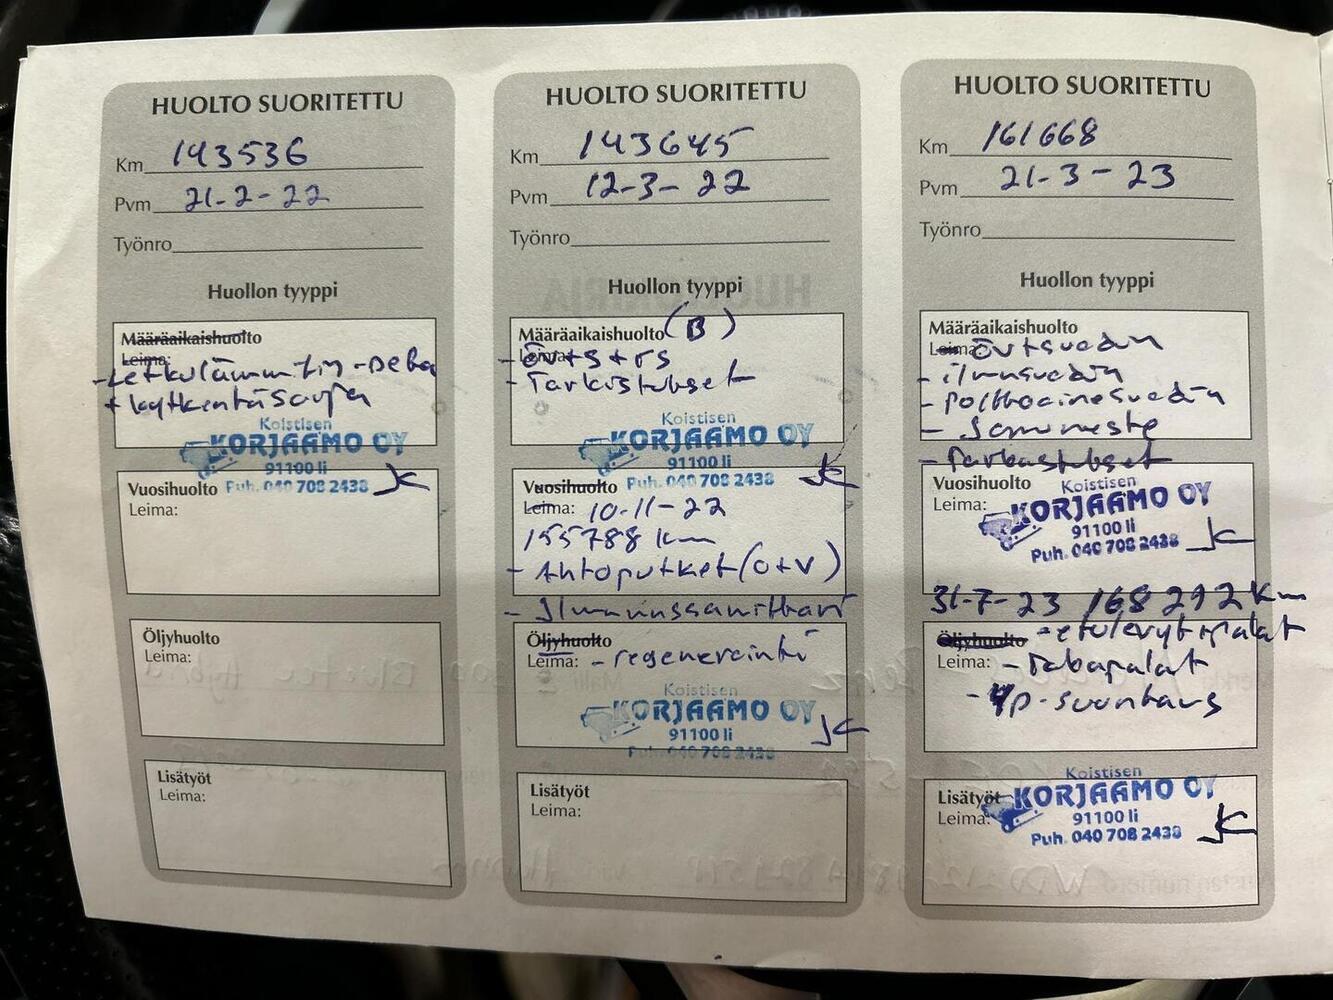 HUOLTO SUORITETTU
Km 143536
Pvm 21-2-22
Työnro
Huollon tyyppi
Määräaikaishuolto
Leima:
- Letkulämmitin -Deba
+ kytkentäsarja
Koistisen
KORJAAMO OY
91100 Ii
Puh. 040 708 2438
Vuosihuolto
Leima:
Öljyhuolto
Leima:
Lisätyöt
Leima:
HUOLTO SUORITETTU
Km 143645
Pvm 12-3-22
Työnro
Huollon tyyppi
Määräaikaishuolto (B)
Leima:
- Öv+S+rs
- Tarkistukset
Koistisen
KORJAAMO OY
91100 Ii
Puh. 040 708 2438
Vuosihuolto
Leima: 10-11-22
155788 km
- Ahtoputket (o+v)
- Ilmamassamittari
Öljyhuolto
Leima: - regenerointi
Koistisen
KORJAAMO OY
91100 Ii
Puh. 040 708 2438
Lisätyöt
Leima:
HUOLTO SUORITETTU
Km 161668
Pvm 21-3-23
Työnro
Huollon tyyppi
Määräaikaishuolto
Leima:
- ilmansuodin
- Polttoainesuodin
- Jarruneste
- Tarkastukset
Vuosihuolto
Leima:
Koistisen
KORJAAMO OY
91100 Ii
Puh. 040 708 2438
31-7-23 168292 km
Öljyhuolto - etulevyt+palat
Leima: - Takapalat
- 4p-suuntaus
Koistisen
Lisätyöt KORJAAMO OY
Leima: 91100 Ii
Puh. 040 708 2438